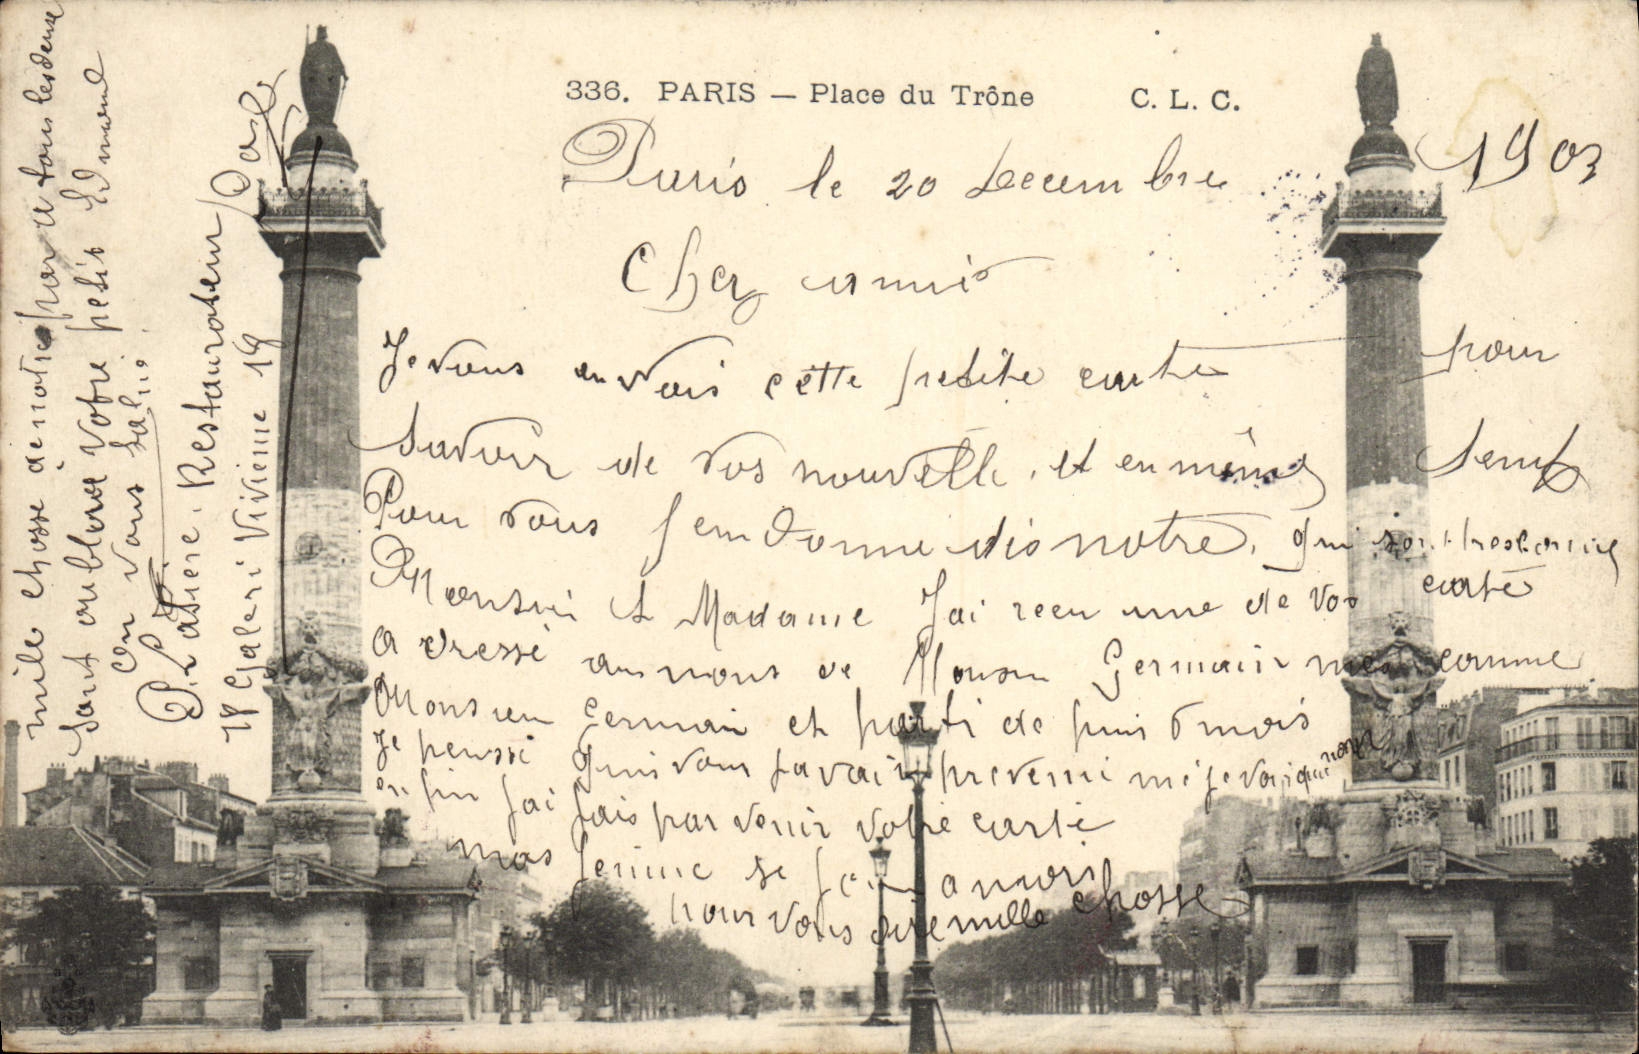 336. PARIS — Place du Trône C. L. C.
Paris le 20 Decembre 1903
Cher amis
Je vous envois cette petite carte pour
savoir de vos nouvelle. et en même temp
Pour vous sendonne dis notre. qui sont tres bonne
Monsieu et Madame J'ai recu une de vos carte
adressé au nons de Monsieu Germain mes comme
Monsieu Germain et parti de puis 6 mois
je pensse quis vous savais prevenu mes je vois que non
enfin jai fais parvenir votre carte
mas femme se a mois
pour vous dire mille chosse
mille chosse damotie par a tous les deux
sant oublier votre petit Edmond
on vous salu.
P. Lasiere. Restaurateur
18 Galeri Vivienne 18